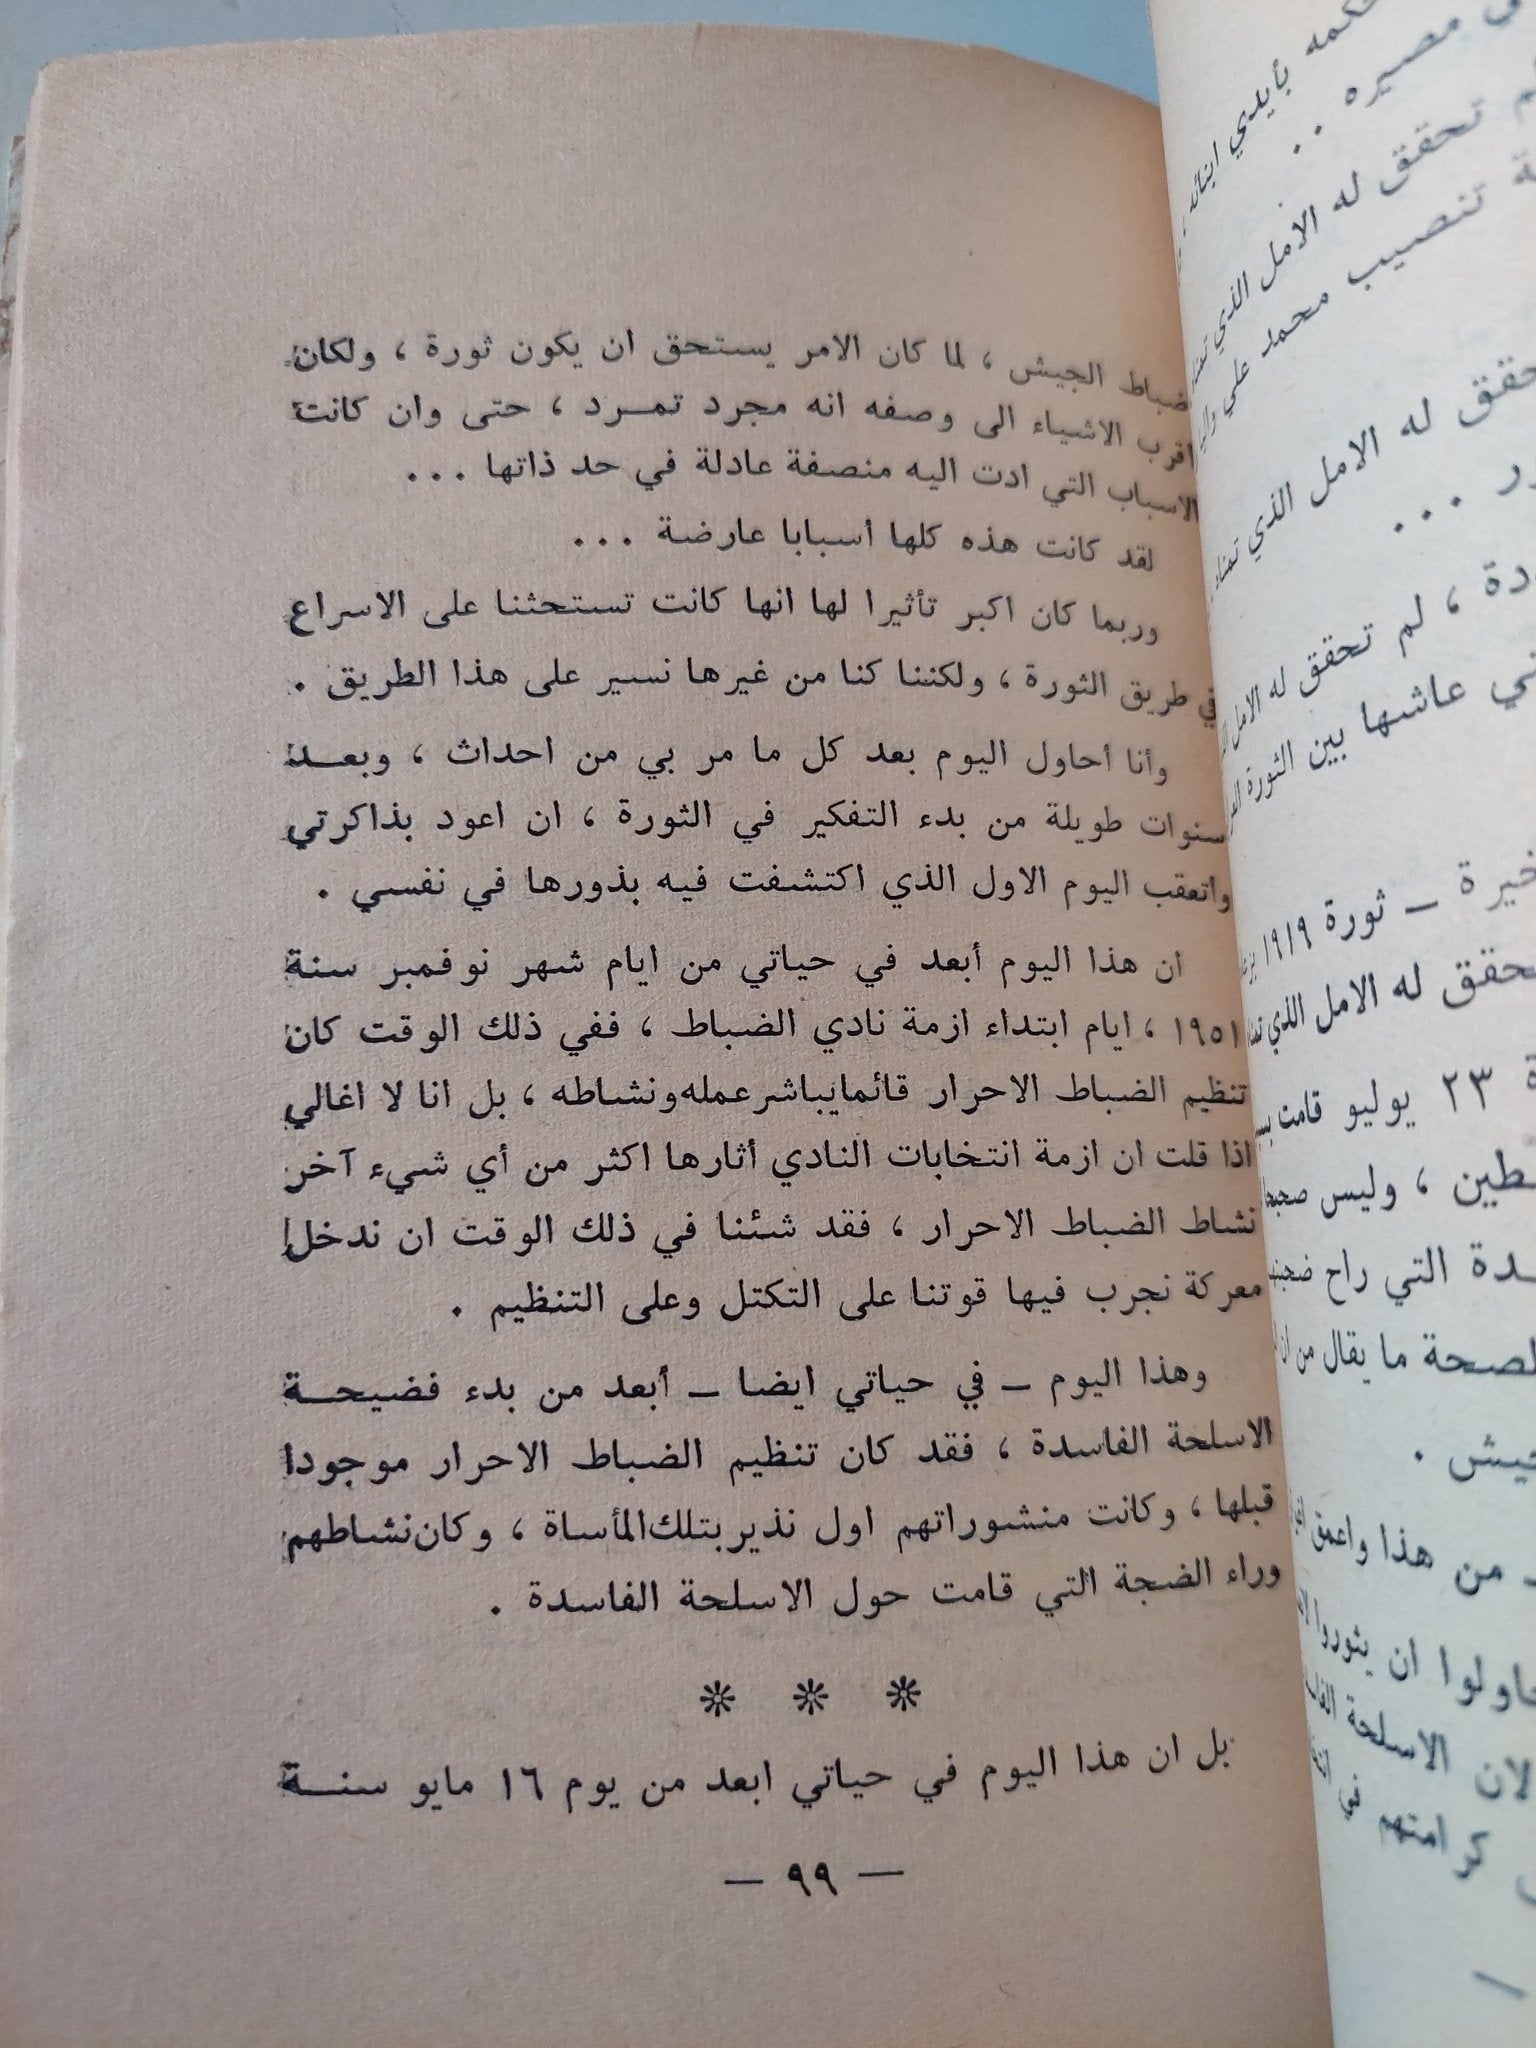 حكمه بأيدي ابنائه
مصيره ..
تحقق له الامل الذي
تنصيب محمد علي
حقق له الامل الذي
...
، لم تحقق له الامل
عاشها بين الثورة
— ثورة ١٩١٩
له الامل الذي
٢٣ يوليو قامت
، وليس
التي راح
ما يقال من ان
.
من هذا واعمق
ان يثوروا
لان الاسلحة
كرامتهم في
ضباط الجيش ، لما كان الامر يستحق ان يكون ثورة ، ولكان
اقرب الاشياء الى وصفه انه مجرد تمــرد ، حتى وان كانت
الاسباب التي ادت اليه منصفة عادلة في حد ذاتها ...
لقد كانت هذه كلها أسبابا عارضة ...
وربما كان اكبر تأثيرا لها انها كانت تستحثنا على الاسراع
في طريق الثورة ، ولكننا كنا من غيرها نسير على هذا الطريق .
وأنا أحاول اليوم بعد كل ما مر بي من احداث ، وبعــد
سنوات طويلة من بدء التفكير في الثورة ، ان اعود بذاكرتي
واتعقب اليوم الاول الذي اكتشفت فيه بذورها في نفسي .
ان هذا اليوم أبعد في حياتي من ايام شهر نوفمبر سنة
١٩٥١ ، ايام ابتداء ازمة نادي الضباط ، ففي ذلك الوقت كان
تنظيم الضباط الاحرار قائما يباشر عمله ونشاطه ، بل انا لا اغالي
اذا قلت ان ازمة انتخابات النادي أثارها اكثر من أي شيء آخر
نشاط الضباط الاحرار ، فقد شئنا في ذلك الوقت ان ندخل
معركة نجرب فيها قوتنا على التكتل وعلى التنظيم .
وهذا اليوم — في حياتي ايضا — أبعد من بدء فضيحــة
الاسلحة الفاسدة ، فقد كان تنظيم الضباط الاحرار موجودا
قبلها ، وكانت منشوراتهم اول نذير بتلك المأساة ، وكان نشاطهم
وراء الضجة التي قامت حول الاسلحة الفاسدة .
❊ ❊ ❊
بل ان هذا اليوم في حياتي ابعد من يوم ١٦ مايو سنــة
— ٩٩ —